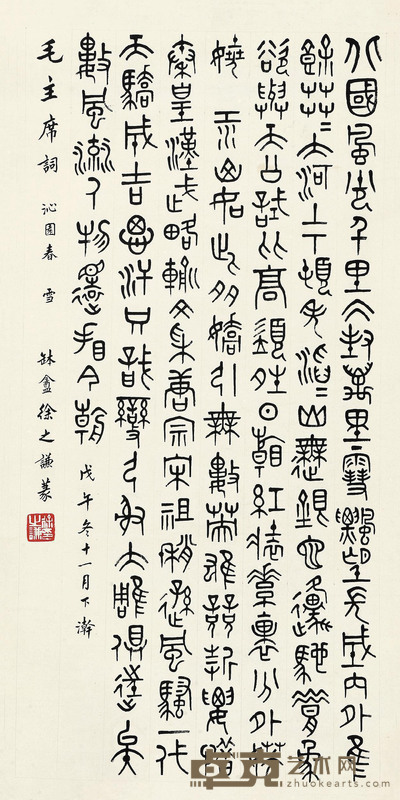 北國風光千里冰封萬里雪飄望長城內外惟
餘莽〻大河上下頓失滔〻山舞銀蛇原馳蠟象
欲與天公試比高須晴日看紅裝素裹分外妖
嬈 江山如此多嬌引無數英雄競折腰惜
秦皇漢武略輸文采唐宗宋祖稍遜風騷一代
天驕成吉思汗只識彎弓射大雕俱往矣
數風流人物還看今朝 戊午冬十一月下澣
毛主席詞 沁園春 雪 缽盦徐之謙篆
卓克艺术网
www.zhuokearts.com